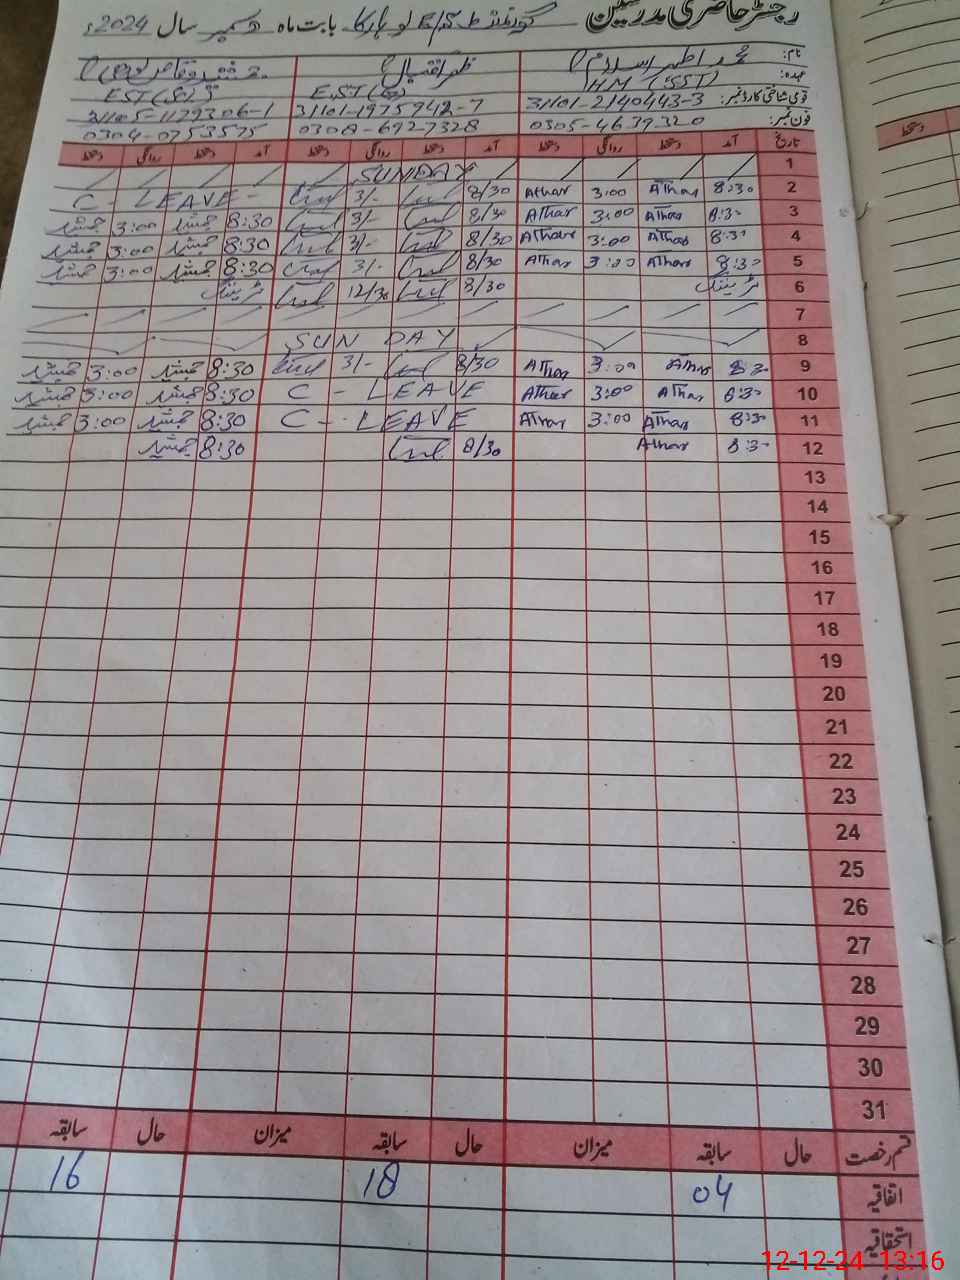 رجسٹر حاضری مدرسین گورنمنٹ بابت ماہ دسمبر سال 2024ء
نام: محمد اطہر اسلام ظفر اقبال
عہدہ: HM (SST) EST EST
قومی شناختی کارڈ نمبر: 31101-2140443-3 31101-1975942-7 31105-1179306-1
فون نمبر: 0305-4639320 0308-6927328 0304-0753575
تاریخ آمد دستخط روانگی دستخط آمد دستخط روانگی دستخط آمد دستخط روانگی دستخط
1 SUNDAY
2 8:30 Athar 3:00 Athar 8/30 3/- C- LEAVE-
3 8:30 Athar 3:00 Athar 8/30 3/- 8:30 جمشید 3:00 جمشید
4 8:30 Athar 3:00 Athar 8/30 3/- 8:30 جمشید 3:00 جمشید
5 8:30 Athar 3:00 Athar 8/30 3/- 8:30 جمشید 3:00 جمشید
6 ٹریننگ 8/30 12/30 ٹریننگ
7
8 SUN DAY
9 8:30 Athar 3:00 Athar 8/30 3/- 8:30 جمشید 3:00 جمشید
10 8:30 Athar 3:00 Athar C - LEAVE 8:30 جمشید 3:00 جمشید
11 8:30 Athar 3:00 Athar C - LEAVE 8:30 جمشید 3:00 جمشید
12 8:30 Athar 8/30 8:30 جمشید
13
14
15
16
17
18
19
20
21
22
23
24
25
26
27
28
29
30
31
قسم رخصت حال سابقہ میزان حال سابقہ میزان حال سابقہ
اتفاقیہ 04 18 16
استحقاقیہ
12-12-24 13:16